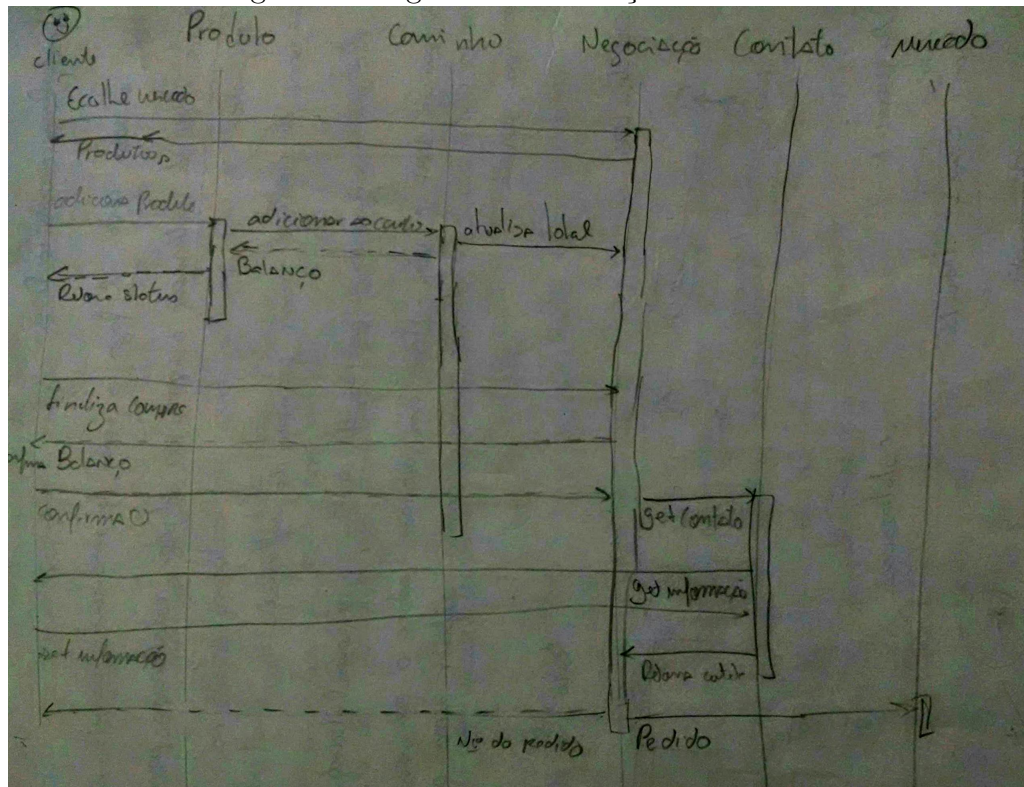 Produto Caminho Negociação Contato Mercado
cliente
Ecolhe mercado
Produtos
adiciona Produto
adicionar ao
atualiza total
Balanço
status
finaliza compras
Balanço
confirma()
get contato
get informação
set informação
Retorna
Nº do pedido Pedido